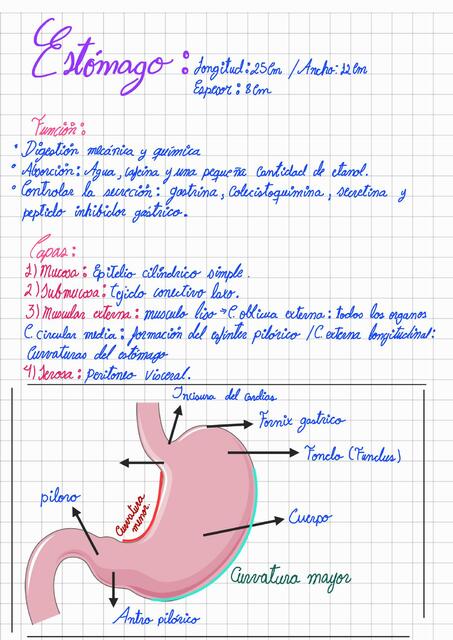 Estómago : Longitud: 25cm / Ancho: 12cm
Espesor: 8cm
Función:
• Digestión mecánica y química
• Absorción: Agua, cafeina y una pequeña cantidad de etanol.
• Controlar la secreción: gastrina, Colecistoquinina, secretina y
peptido inhibidor gástrico.
Capas:
1) Mucosa: Epitelio cilíndrico simple.
2) Submucosa: tejido conectivo laxo.
3) Muscular externa: musculo liso → C. oblicua externa: todos los organos
C. circular media: formación del esfínter pilórico / C. externa longitudinal:
Curvaturas del estómago
4) Serosa: peritoneo visceral.
Incisura del cardias
Fornix gastrico
Fondo (Fundus)
piloro
Curvatura
menor
Cuerpo
Curvatura mayor
Antro pilórico